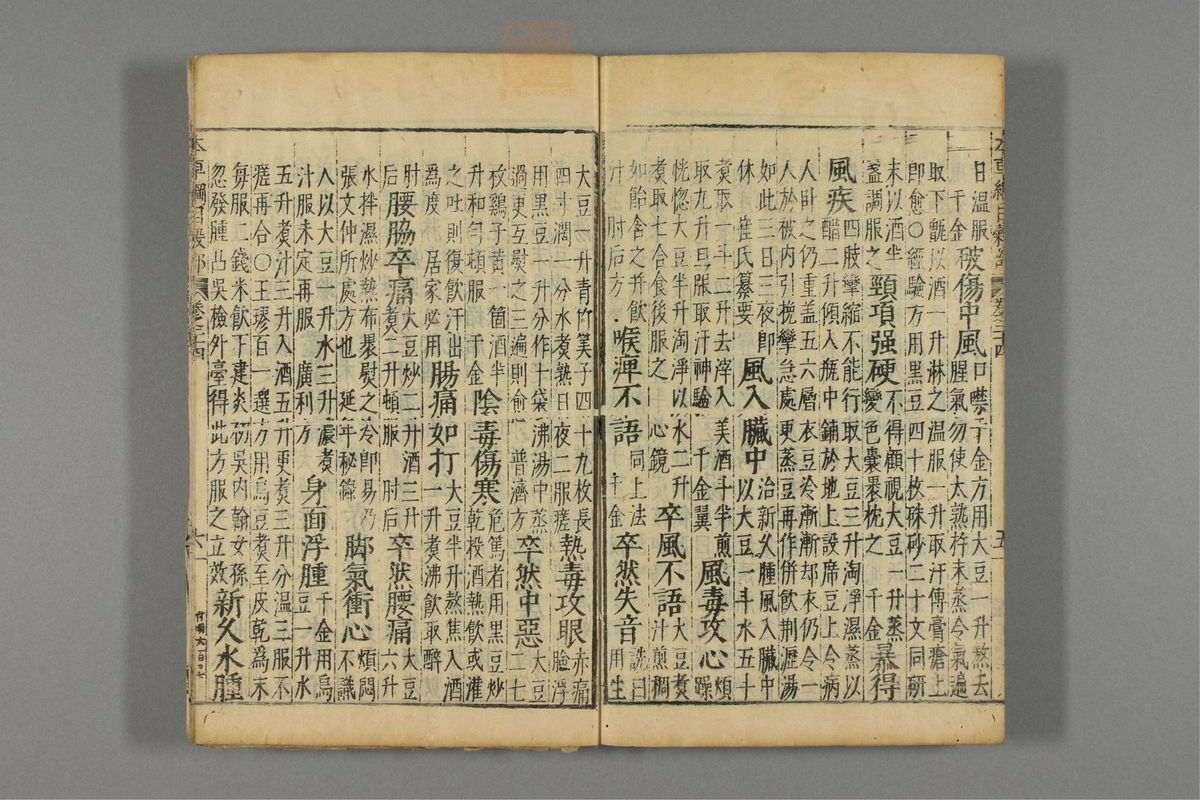 日温服千金破傷中風口噤千金方用大豆一升熬去
腥氣勿使太熟杵末蒸令氣遍
取下甑以酒一升淋之温服一升取汗傅膏瘡上
即愈○經驗方用黑豆四十枚硃砂二十文同研
末以酒半盞調服之頸項强硬不得顧視大豆一升蒸
變色囊裹枕之千金暴得
風疾四肢攣縮不能行取大豆三升淘淨濕蒸以
醋二升傾入瓶中鋪於地上設席豆上令病
人卧之仍重盖五六層衣豆冷漸漸却衣仍令一
人於被内引挽攣急處更蒸豆再作併飲荆瀝湯
如此三日三夜即休崔氏纂要風入臟中治新久腫風入臟中
以大豆一斗水五斗
煮取一斗二升去滓入美酒斗半煎
取九升旦服取汗神驗千金翼風毒攻心煩躁
恍惚大豆半升淘淨以水二升
煮取七合食後服之心鏡卒風不語大豆煮汁煎稠
如飴含之并飲汁肘后方喉痺不語同上法千金卒然失音詵曰用生
大豆一升青竹筭子四十九枚長
四寸闊一分水煮熟日夜二服瘥熱毒攻眼赤痛瞼浮
用黑豆一升分作十袋沸湯中蒸
過更互熨之三遍則愈普濟方卒然中惡大豆二七
枚雞子黄一箇酒半
升和勻頓服千金陰毒傷寒危篤者用黑豆炒
乾投酒熱飲或灌
之吐則復飲汗出為度居家必用腸痛如打大豆半升熬焦入酒
一升煮沸飲取醉
肘后腰脇卒痛大豆炒二升酒三升
煮二升頓服肘后卒然腰痛大豆六升
水拌濕炒熱布裹熨之冷即易乃
張文仲所處方也延年秘錄脚氣衝心煩悶不識
人以大豆一升水三升濃煮
汁服未定再服廣利方身面浮腫千金用烏豆一升水
五升煮汁三升入酒五升更煮三升分温三服不
瘥再合○王璆百一選方用烏豆煮至皮乾為末
每服二錢米飲下建炎初吳内翰女孫
忽發腫凸吳檢外臺得此方服之立效新久水腫